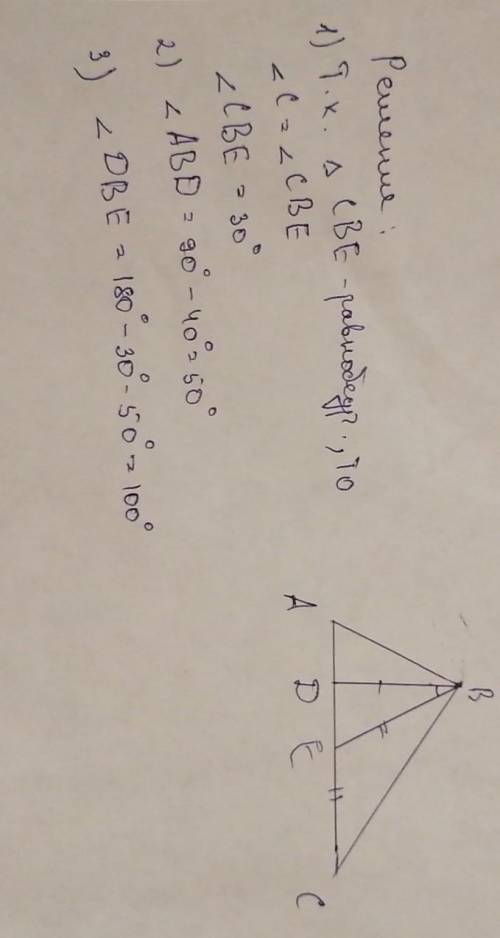 Решение:
1) Т.к. △ CBE - равнобедр., то
∠C = ∠CBE
∠CBE = 30°
2) ∠ABD = 90° - 40° = 50°
3) ∠DBE = 180° - 30° - 50° = 100°
B
A D E C